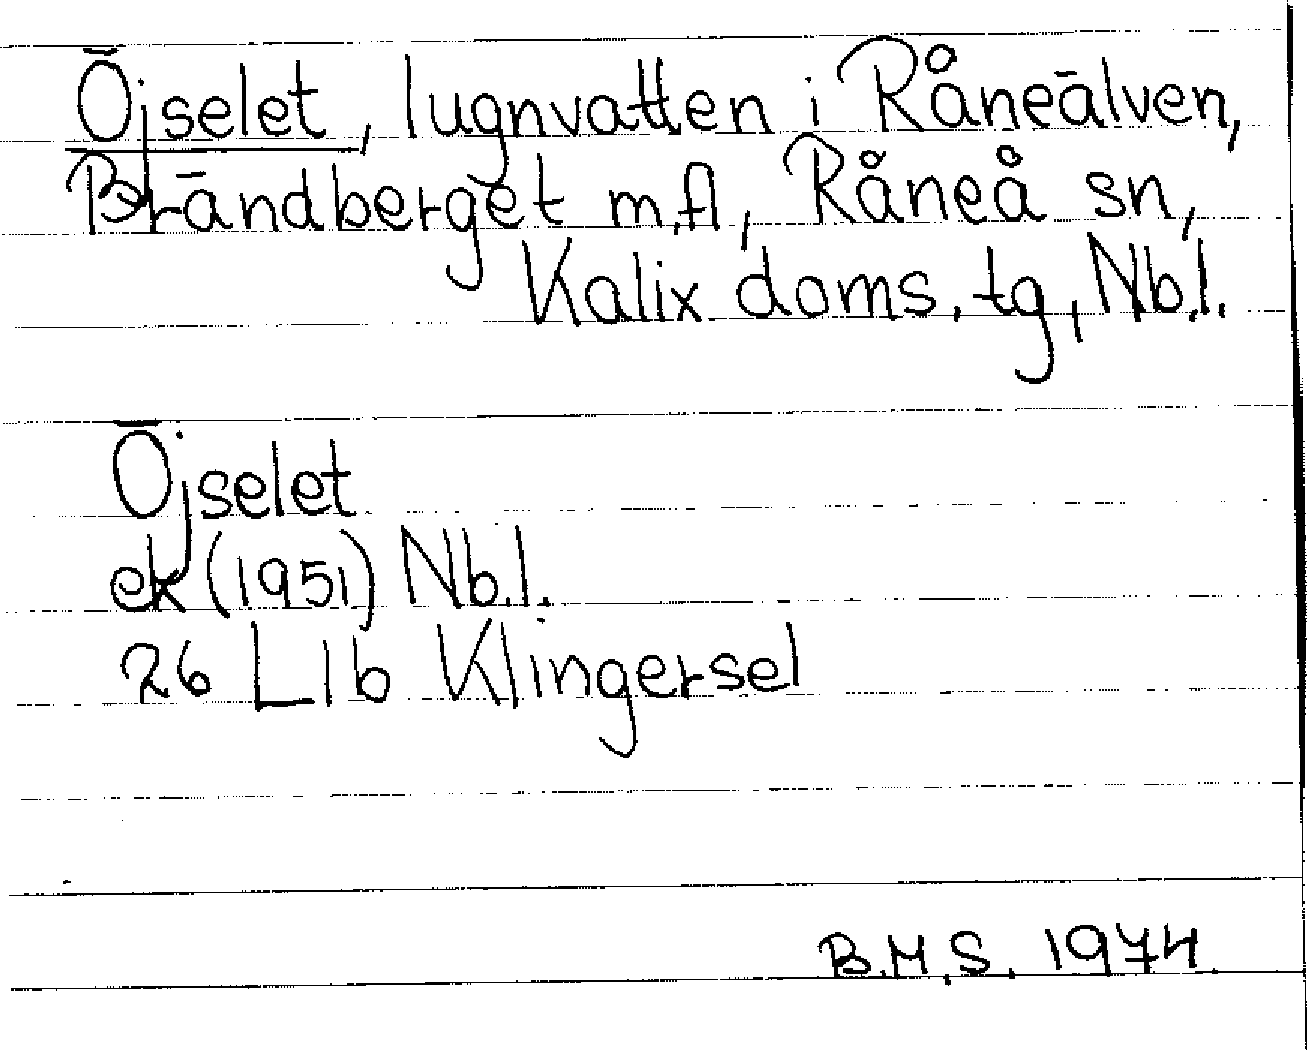 Öjselet, lugnvatten i Råneälven,
Brändberget m.fl, Råneå sn,
Kalix doms. tg, Nb.l.
Öjselet
ek (1951) Nb.l.
26 L1b Klingersel
B.M.S. 1974.